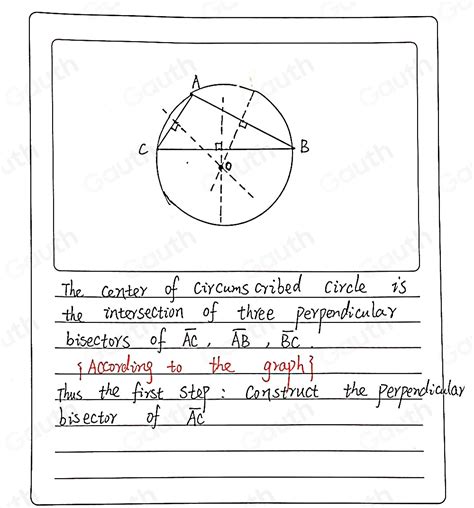 A
C
B
O
The center of circumscribed circle is
the intersection of three perpendicular
bisectors of A̅C̅, A̅B̅, B̅C̅.
{According to the graph}
Thus the first step: construct the perpendicular
bisector of A̅C̅